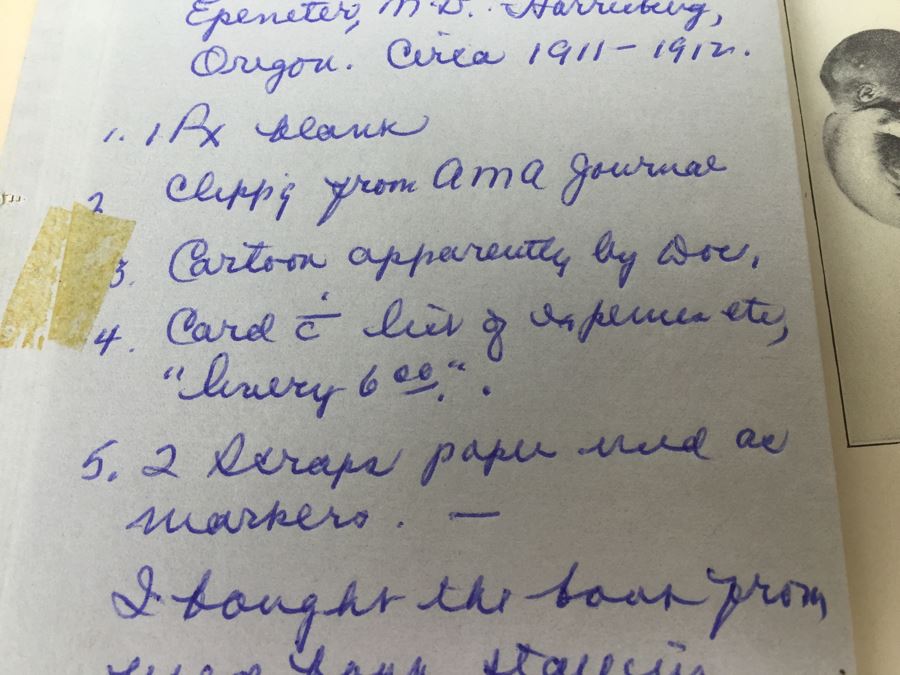 Epeneter, M.D. Harrisburg,
Oregon. Circa 1911-1912.
1. 1 Rx blank
2 Clipp'g from AMA Journal
3. Cartoon apparently by Doc.
4. Card c̄ list of expenses etc,
"livery 6 00".
5. 2 Scraps paper used as
markers. —
I bought the book from
book